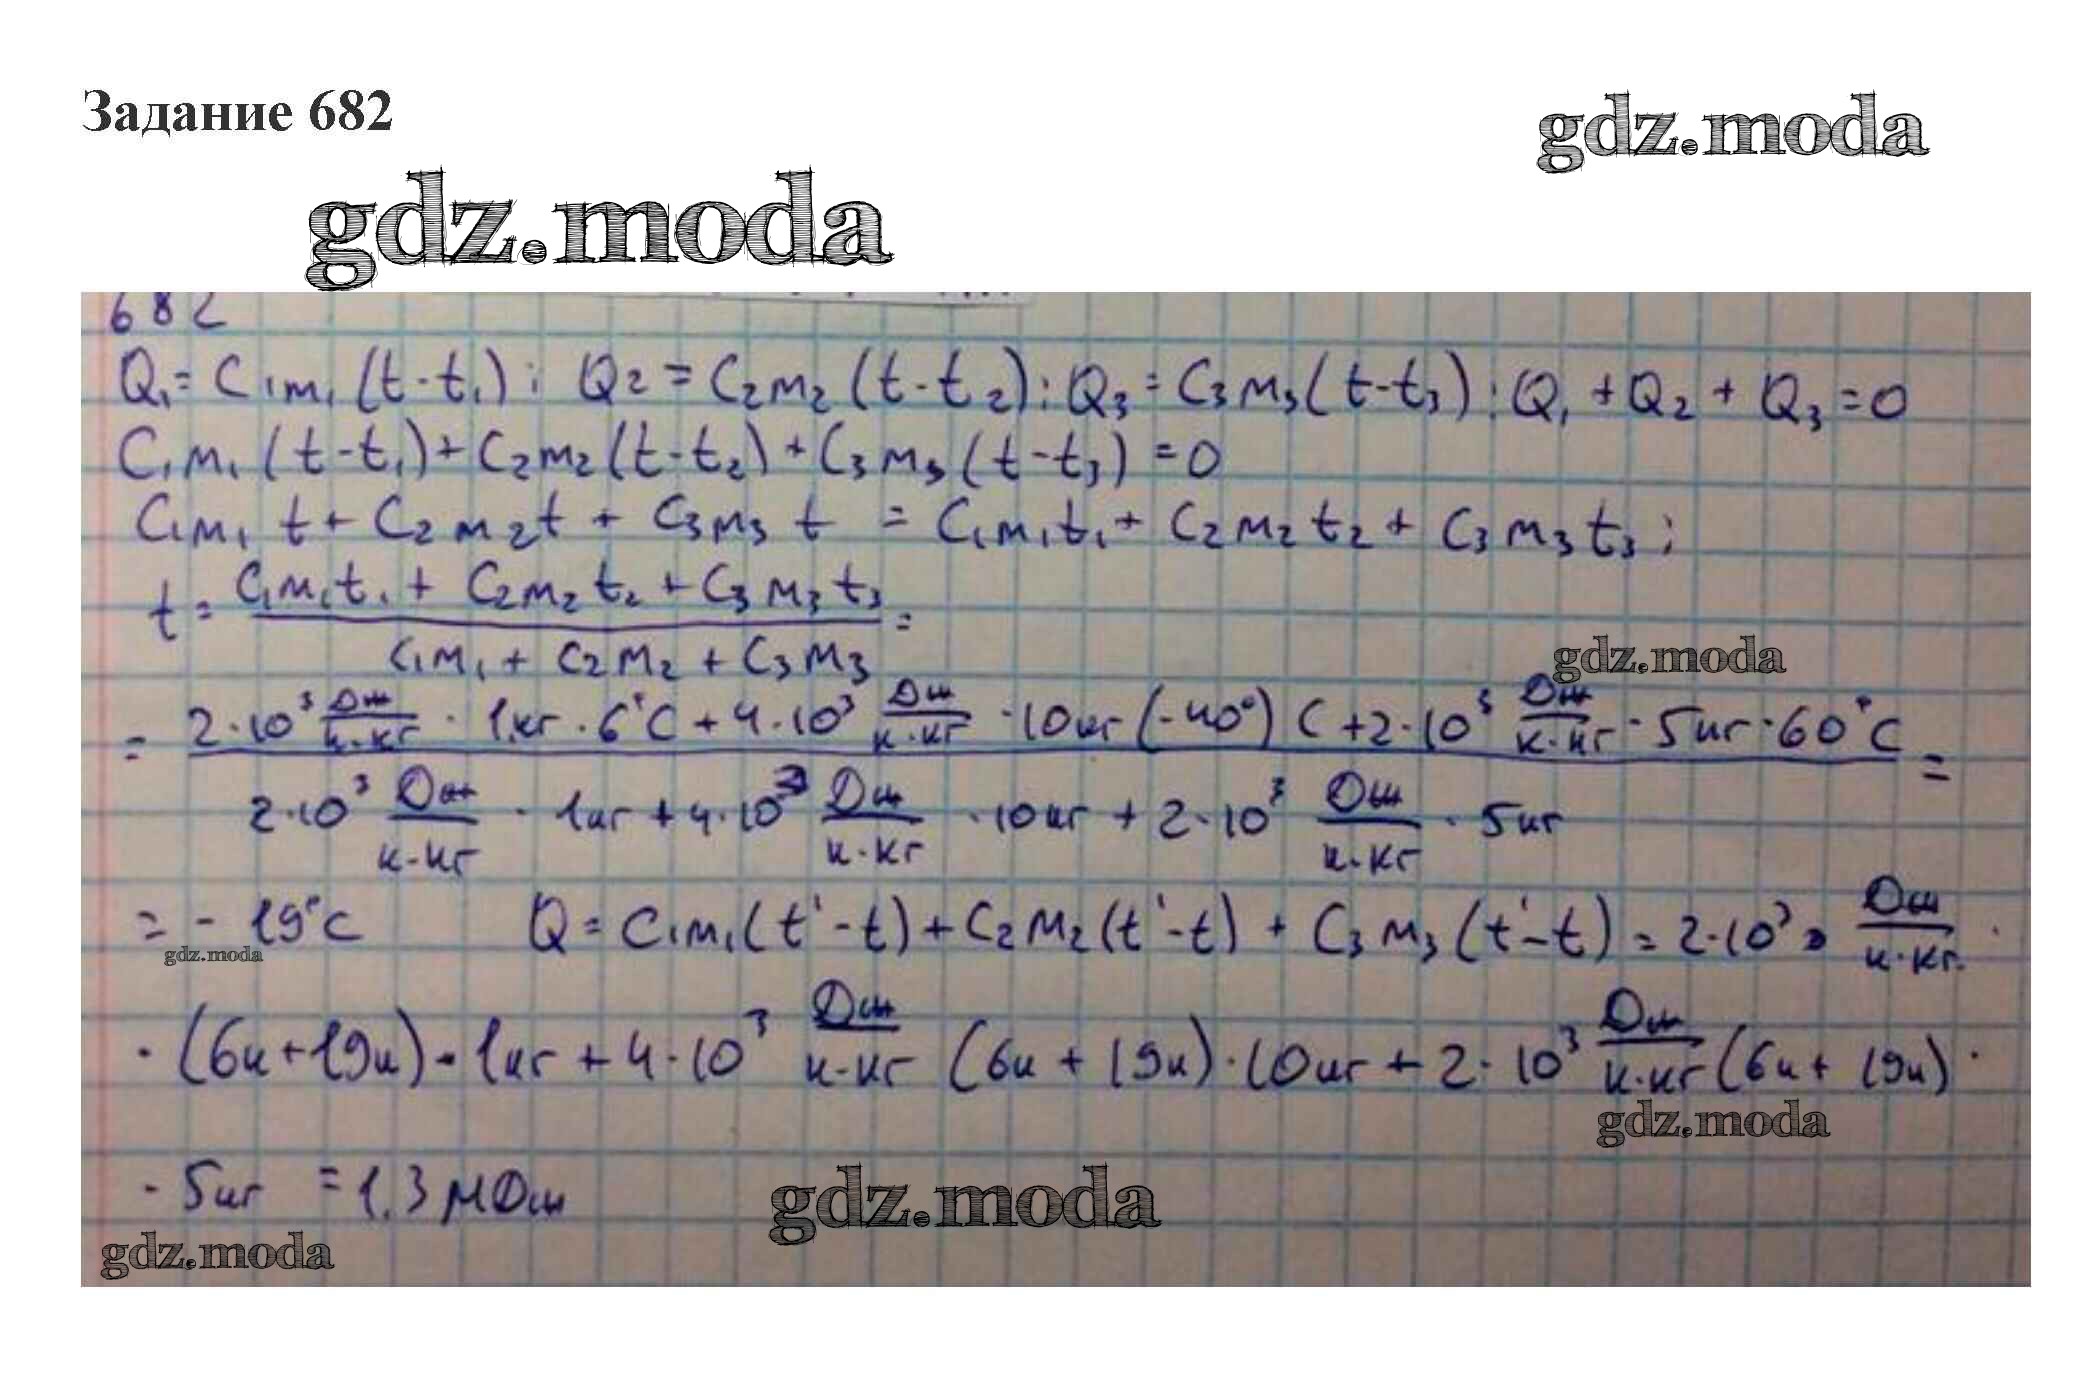 Задание 682
gdz.moda
gdz.moda
682
Q₁ = C₁m₁(t-t₁); Q₂ = C₂m₂(t-t₂); Q₃ = C₃m₃(t-t₃); Q₁ + Q₂ + Q₃ = 0
C₁m₁(t-t₁) + C₂m₂(t-t₂) + C₃m₃(t-t₃) = 0
C₁m₁t + C₂m₂t + C₃m₃t = C₁m₁t₁ + C₂m₂t₂ + C₃m₃t₃;
t = (C₁m₁t₁ + C₂m₂t₂ + C₃m₃t₃) / (C₁m₁ + C₂m₂ + C₃m₃) =
gdz.moda
= (2·10³ Дж/к·кг · 1кг · 6°C + 4·10³ Дж/к·кг · 10кг (-40°) C + 2·10³ Дж/к·кг · 5кг · 60°C) / (2·10³ Дж/к·кг · 1кг + 4·10³ Дж/к·кг · 10кг + 2·10³ Дж/к·кг · 5кг) =
= -19°C Q = C₁m₁(t'-t) + C₂m₂(t'-t) + C₃m₃(t'-t) = 2·10³ Дж/к·кг ·
gdz.moda
· (6к+19к) · 1кг + 4·10³ Дж/к·кг (6к + 19к) · 10кг + 2·10³ Дж/к·кг (6к + 19к) ·
gdz.moda
· 5кг = 1,3 мДж
gdz.moda
gdz.moda